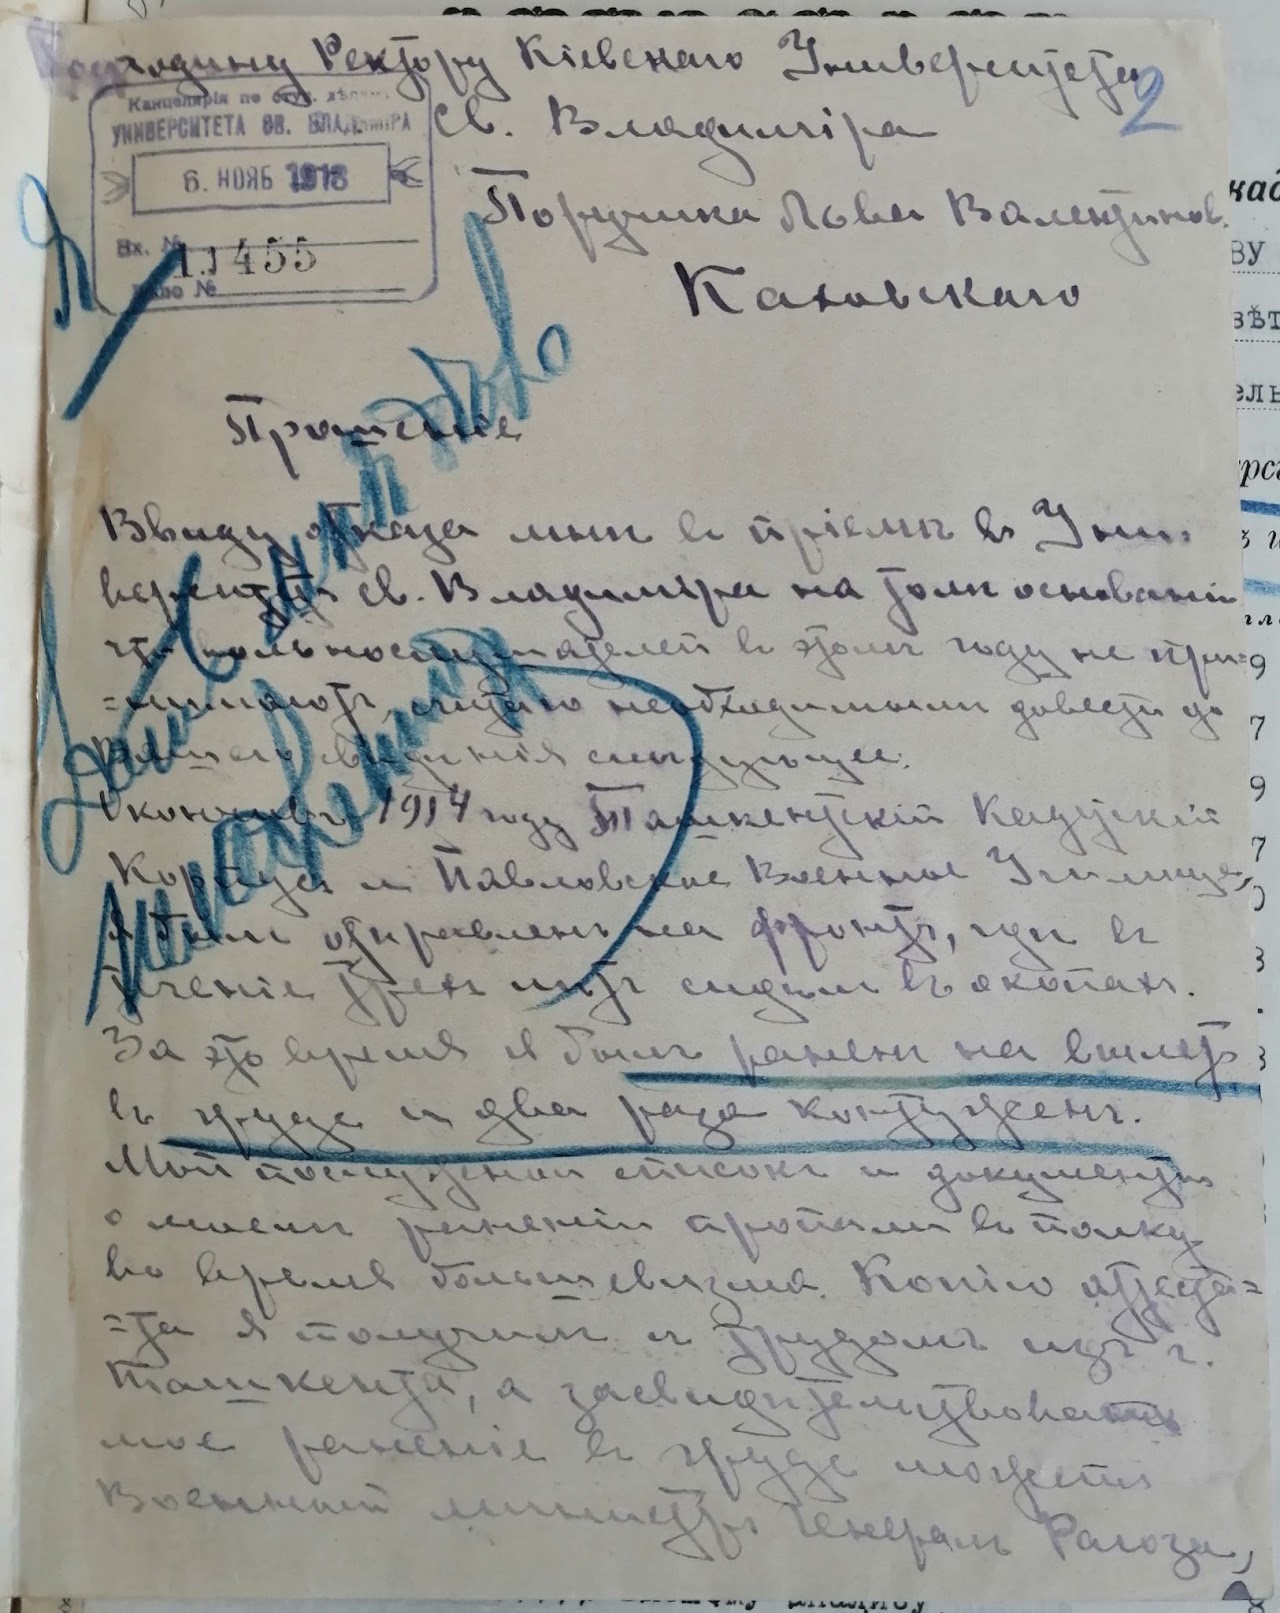 Господину Ректору Кіевскаго Университета
2
Св. Владиміра
Канцелярія по студ. дѣламъ
УНИВЕРСИТЕТА СВ. ВЛАДИМІРА
6. НОЯБ 1918
Вх. № 11455
Дѣло №
Поручика Льва Валентинов.
Каховскаго
Прошеніе
Ввиду отказа мнѣ въ пріемѣ въ Уни-
верситетъ св. Владиміра на томъ основаніи
что вольнослушателей въ этомъ году не при-
=нимаютъ, считаю необходимымъ довести до
Вашего свѣдѣнія слѣдующее.
Окончивъ 1914 году Ташкентскій Кадетскій
Корпусъ и Павловское Военное Училище,
я былъ отправленъ на фронтъ, гдѣ въ
теченіе трехъ лѣтъ сидѣлъ въ окопахъ.
За это время я былъ раненъ на вылетъ
въ грудь и два раза контуженъ.
Мой послужной списокъ и документы
о моемъ раненіи пропали въ полку
во время большевизма. Копію аттеста=
=та я получилъ съ трудомъ изъ г.
Ташкента, а засвидѣтельствовать
мое раненіе въ грудь можетъ
Военный министръ Генералъ Рагоза,